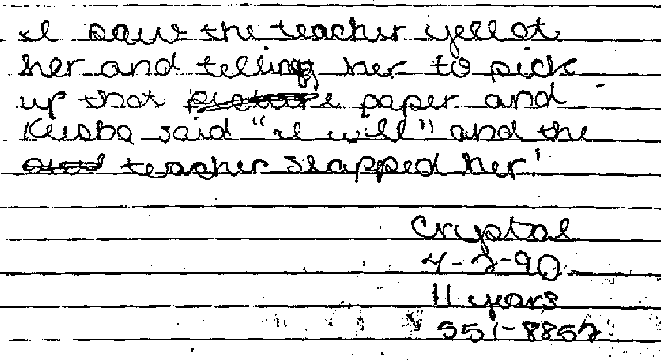 I saw the teacher yell at
her and telling her to pick
up that picture paper and
Keisha said "I will" and the
teacher slapped her!
Crystal
4-2-90
11 years
551-8852